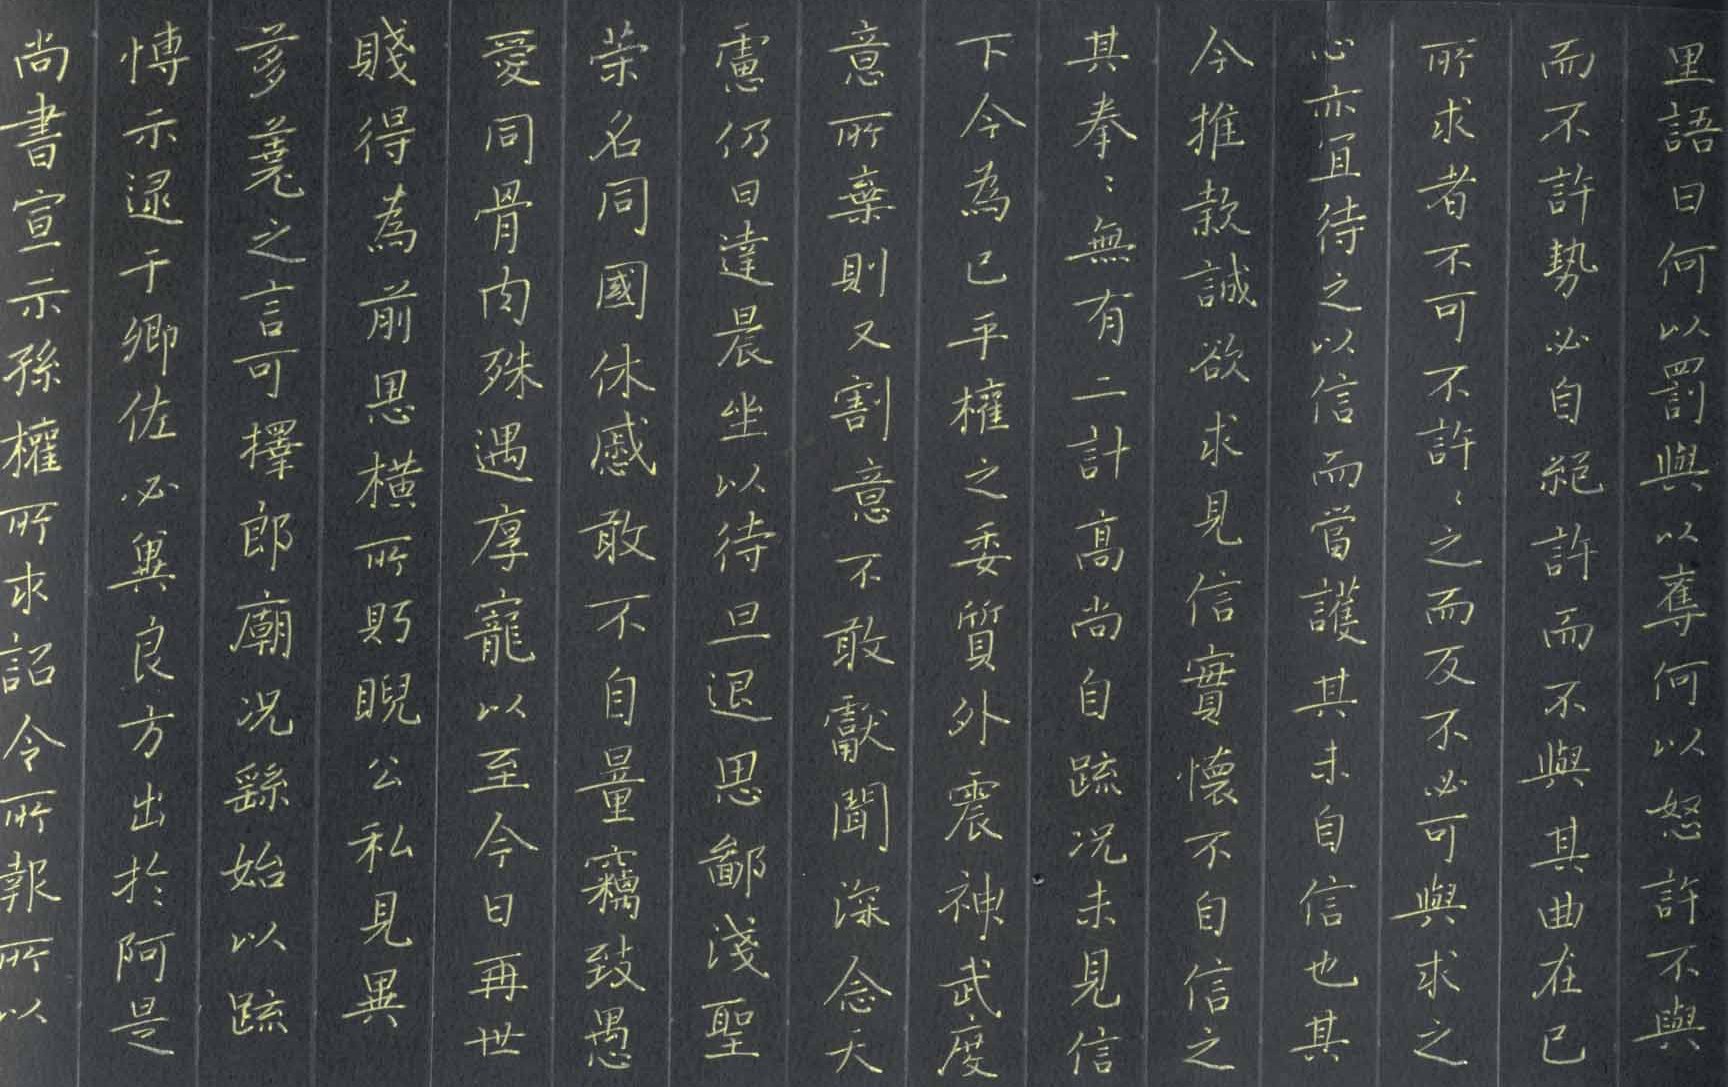 尚書宣示孫權所求詔令所報所以
愽示逮于卿佐必冀良方出於阿是
芻蕘之言可擇郎廟況繇始以疏
賤得為前恩橫所眄睨公私見異
愛同骨肉殊遇厚寵以至今日再世
榮名同國休慼敢不自量竊致愚
慮仍日達晨坐以待旦退思鄙淺聖
意所棄則又割意不敢獻聞深念天
下今為已平權之委質外震神武度
其拳〻無有二計高尚自疏況未見信
今推款誠欲求見信實懷不自信之
心亦宜待之以信而當護其未自信也其
所求者不可不許〻之而反不必可與求之
而不許勢必自絕許而不與其曲在己
里語曰何以罰與以奪何以怒許不與